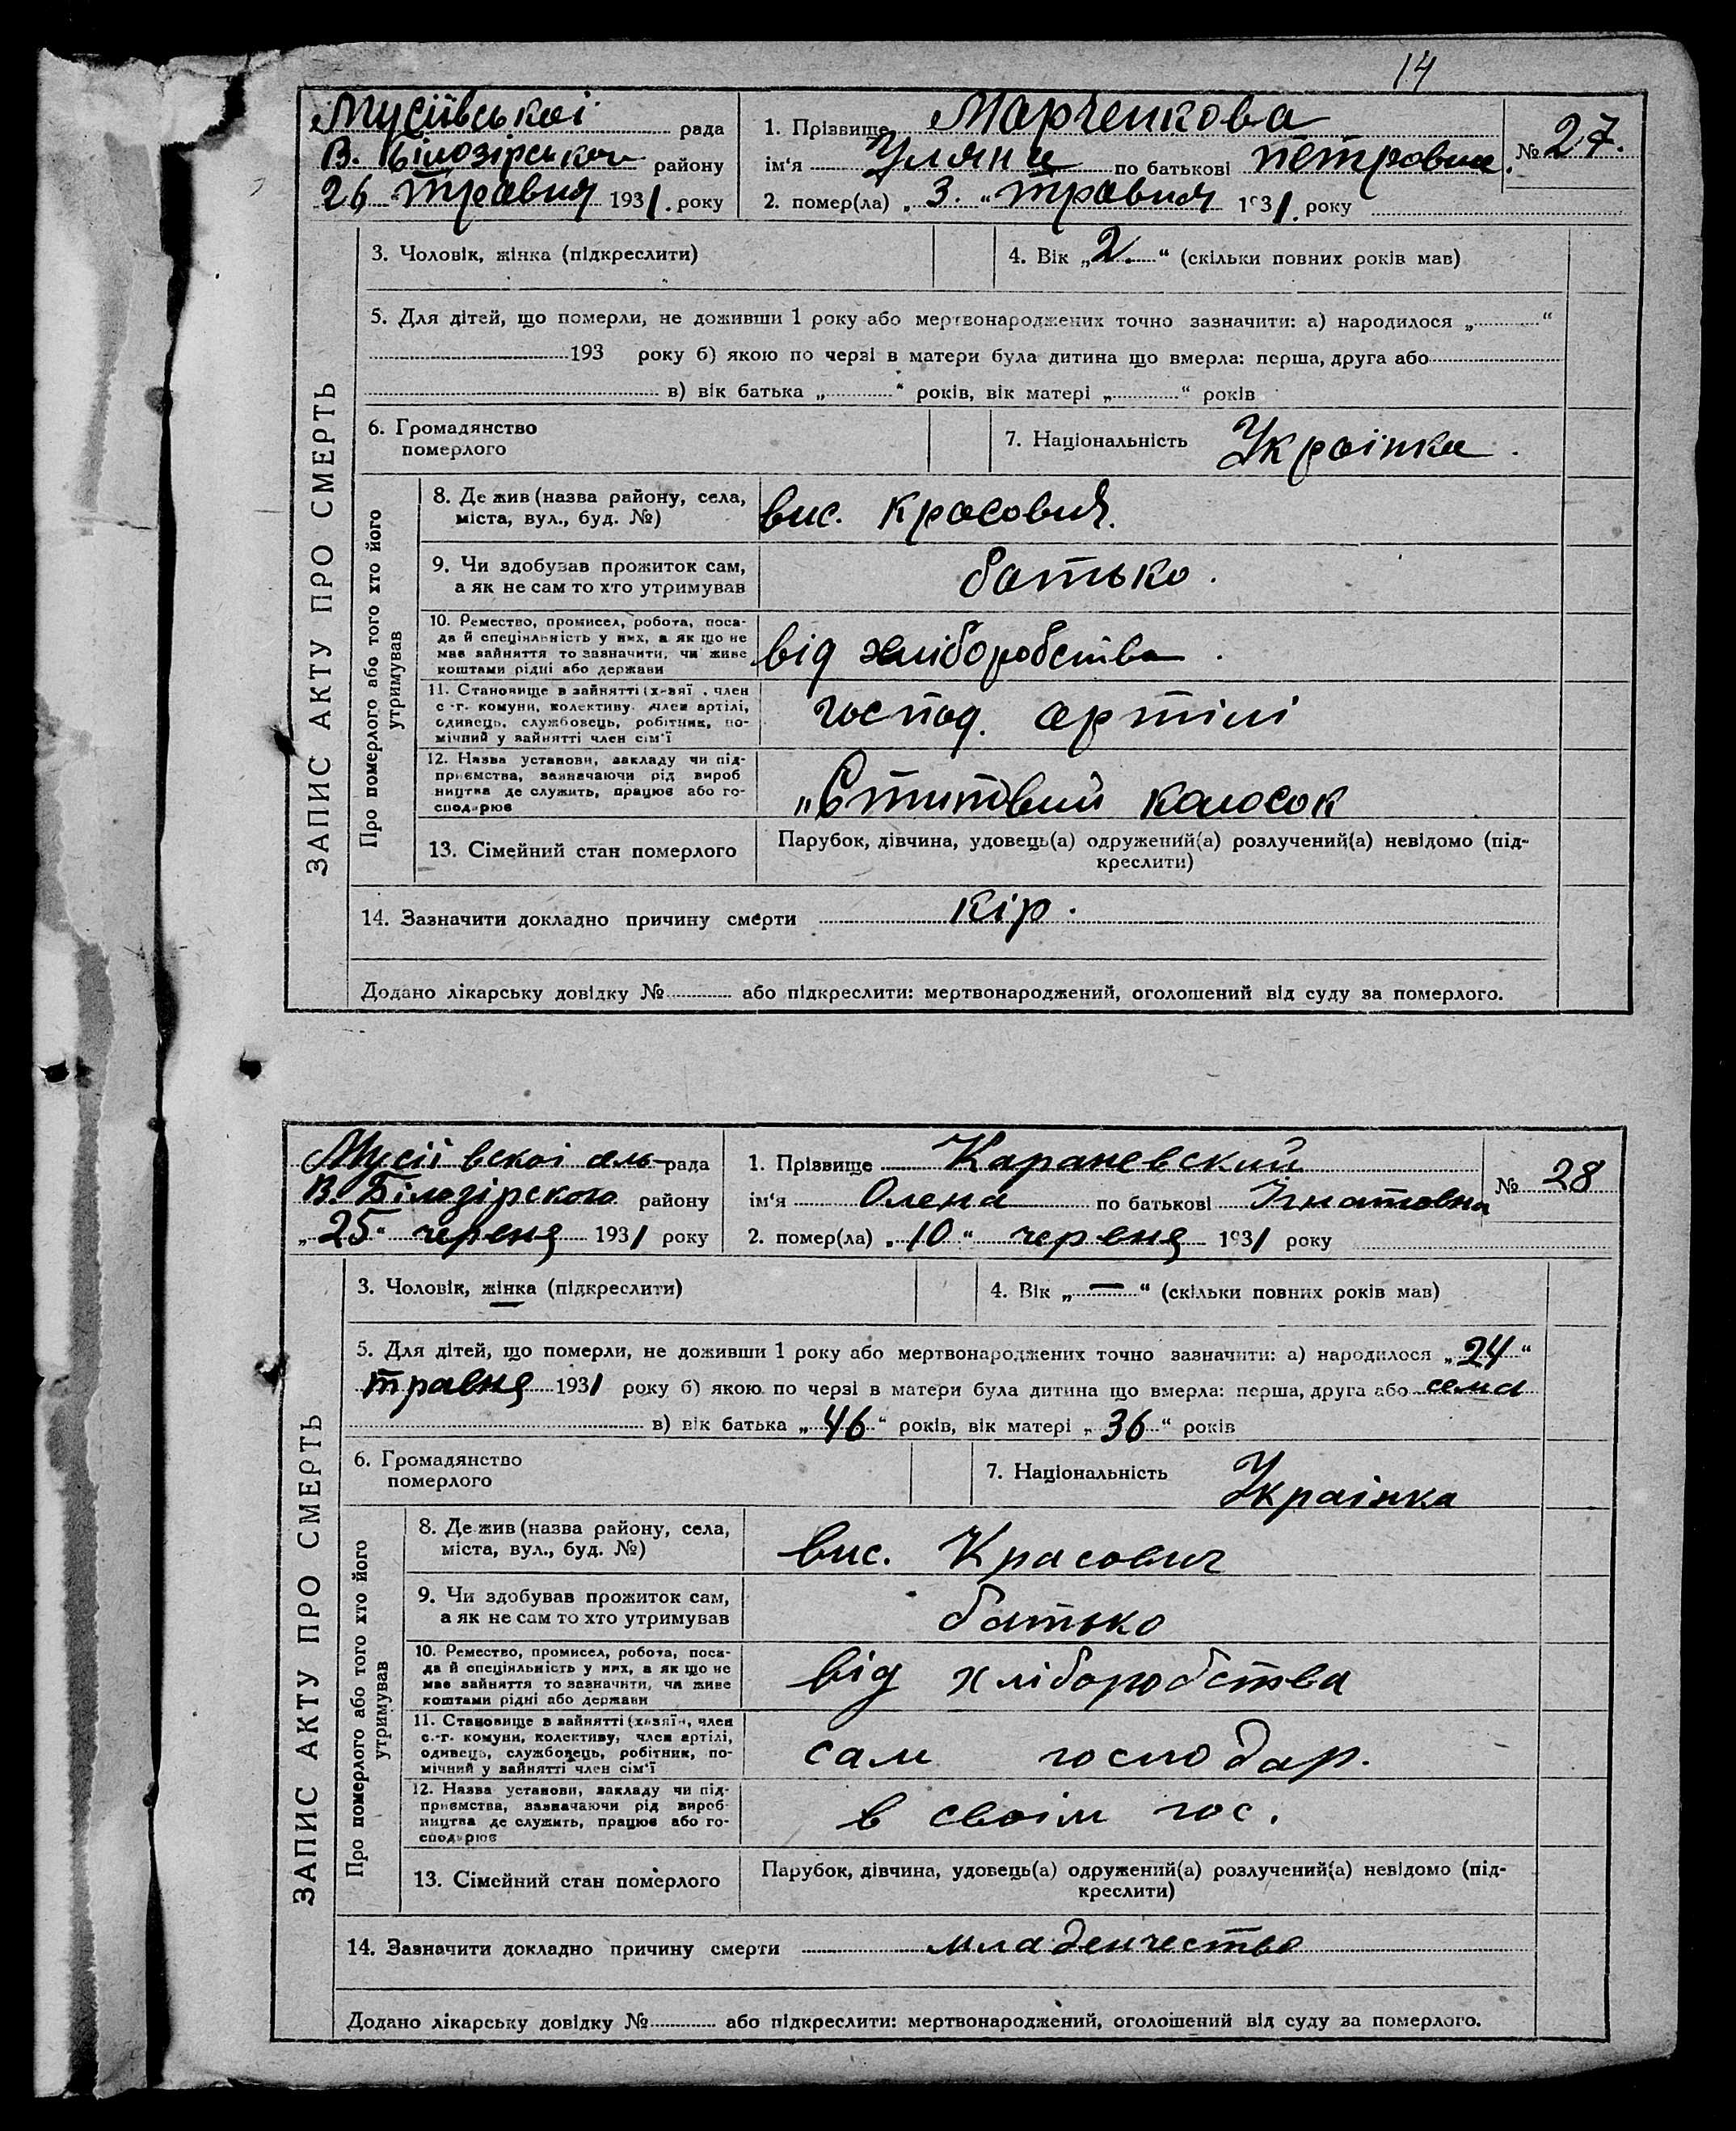 14
Мусіївської рада
В. Білозірського району
26 травня 1931. року
1. Прізвище Марченкова
ім'я Уляна по батькові петровна.
№ 27.
2. помер(ла) „3.“ травня 1931. року
ЗАПИС АКТУ ПРО СМЕРТЬ
3. Чоловік, жінка (підкреслити)
4. Вік „2.“ (скільки повних років мав)
5. Для дітей, що померли, не доживши 1 року або мертвонароджених точно зазначити: а) народилося „ “
193 року б) якою по черзі в матери була дитина що вмерла: перша, друга або
в) вік батька „ “ років, вік матері „ “ років
6. Громадянство
померлого
7. Національність Українка.
Про померлого або того хто його
утримував
8. Де жив (назва району, села,
міста, вул., буд. №)
вис. Красович.
9. Чи здобував прожиток сам,
а як не сам то хто утримував
батько.
10. Ремество, промисел, робота, поса-
да й спеціяльність у них, а як що не
має зайняття то зазначити, чи живе
коштами рідні або держави
від хліборобства.
11. Становище в зайнятті (х-зяї , член
с.-г. комуни, колективу, член артілі,
одинець, службовець, робітник, по-
мічний у зайнятті член сім'ї
господ. артілі
12. Назва установи, закладу чи під-
приємства, зазначаючи рід вироб
ництва де служить, працює або го-
сподарює
колосок
13. Сімейний стан померлого
Парубок, дівчина, удовець(а) одружений(а) розлучений(а) невідомо (під-
креслити)
14. Зазначити докладно причину смерти кір.
Додано лікарську довідку № або підкреслити: мертвонароджений, оголошений від суду за померлого.
Мусіївскої сіль-рада
В. Білозірского району
„25“ червня 1931 року
1. Прізвище Караневский
ім'я Олена по батькові Ігнатовна
№ 28
2. помер(ла) „10“ червня 1931 року
ЗАПИС АКТУ ПРО СМЕРТЬ
3. Чоловік, жінка (підкреслити)
4. Вік „—“ (скільки повних років мав)
5. Для дітей, що померли, не доживши 1 року або мертвонароджених точно зазначити: а) народилося „24“
травня 1931 року б) якою по черзі в матери була дитина що вмерла: перша, друга або сема
в) вік батька „46“ років, вік матері „36“ років
6. Громадянство
померлого
7. Національність Українка
Про померлого або того хто його
утримував
8. Де жив (назва району, села,
міста, вул., буд. №)
вис. Красович
9. Чи здобував прожиток сам,
а як не сам то хто утримував
батько
10. Ремество, промисел, робота, поса-
да й спеціяльність у них, а як що не
має зайняття то зазначити, чи живе
коштами рідні або держави
від хліборобства
11. Становище в зайнятті (хазяїн, член
с.-г. комуни, колективу, член артілі,
одинець, службовець, робітник, по-
мічний у зайнятті член сім'ї
сам господар.
12. Назва установи, закладу чи під-
приємства, зазначаючи рід вироб-
ництва де служить, працює або го-
сподарює
в своїм гос.
13. Сімейний стан померлого
Парубок, дівчина, удовець(а) одружений(а) розлучений(а) невідомо (під-
креслити)
14. Зазначити докладно причину смерти младенчество
Додано лікарську довідку № або підкреслити: мертвонароджений, оголошений від суду за померлого.